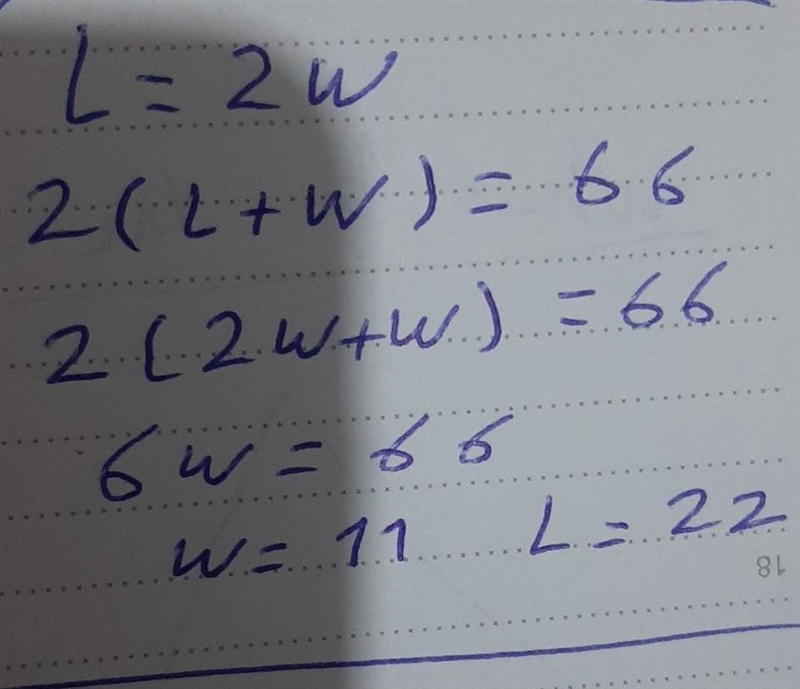 L = 2W
2(L+W) = 66
2(2W+W) = 66
6W = 66
W = 11 L = 22
18